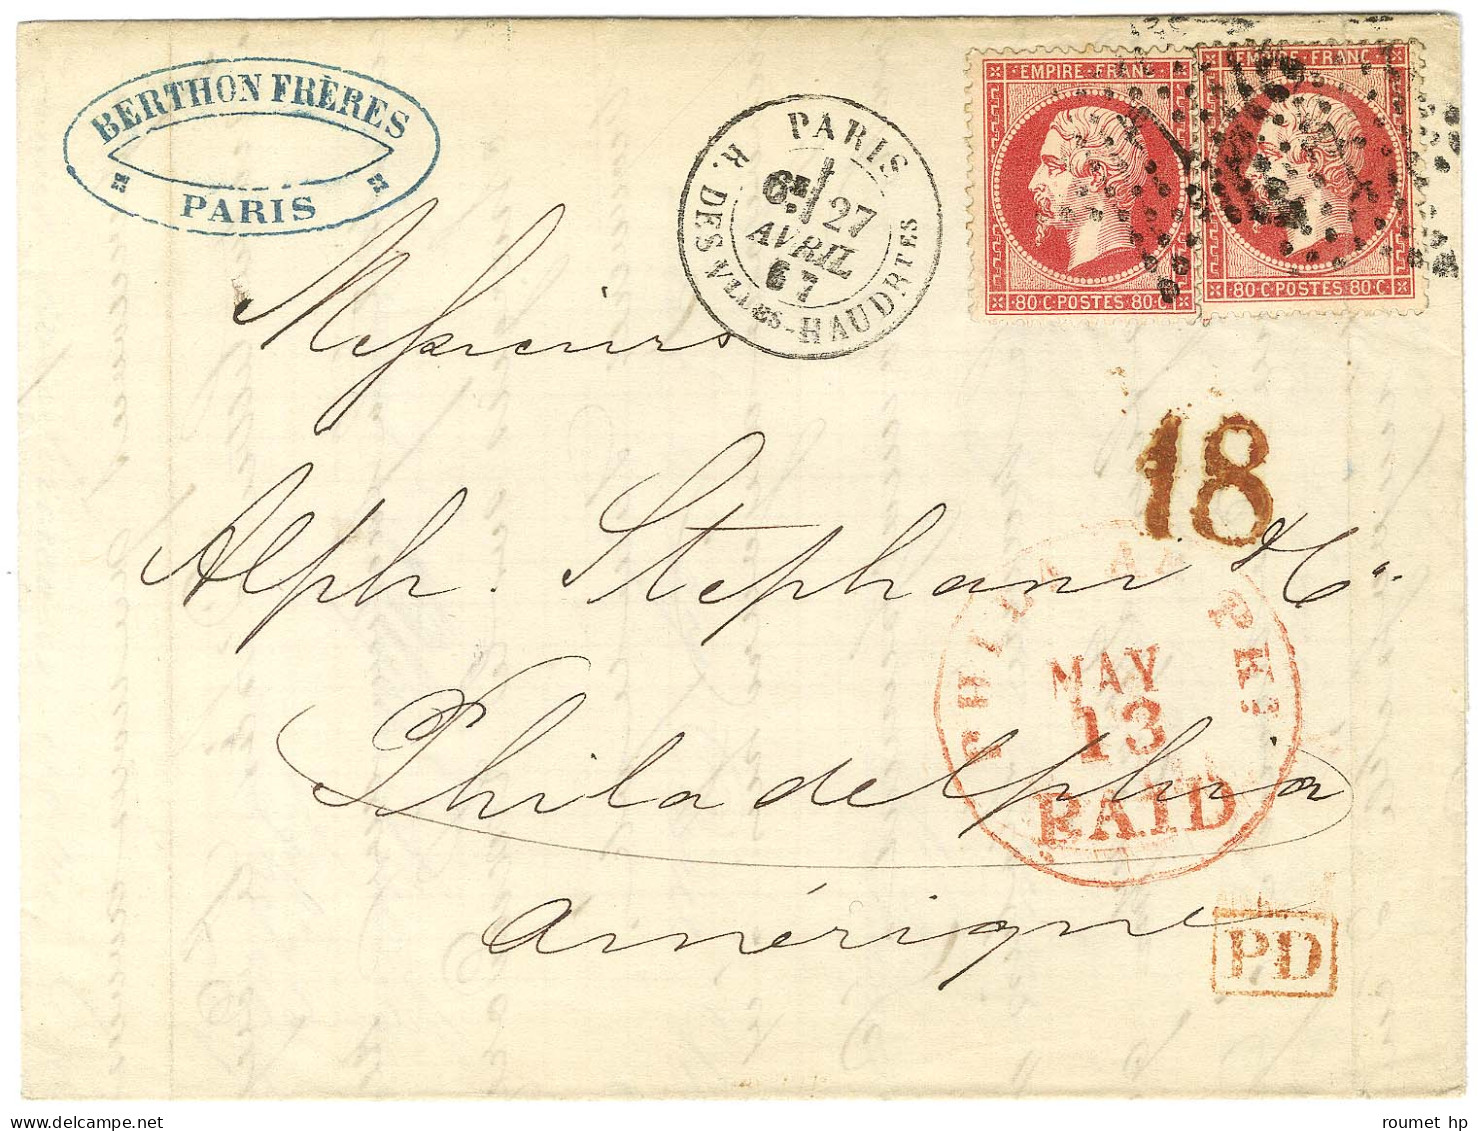 BERTHON FRÈRES
PARIS
PARIS
6E/ 27
AVRIL
67
R. DES VLLES-HAUDRTES
EMPIRE FRANC
80 C POSTES 80 C
EMPIRE FRANC
80 C POSTES 80 C
18
Messieurs
Alph. Stephani & Cie
Philadelphia
Amérique
MAY
13
PAID
PD
roumet hp